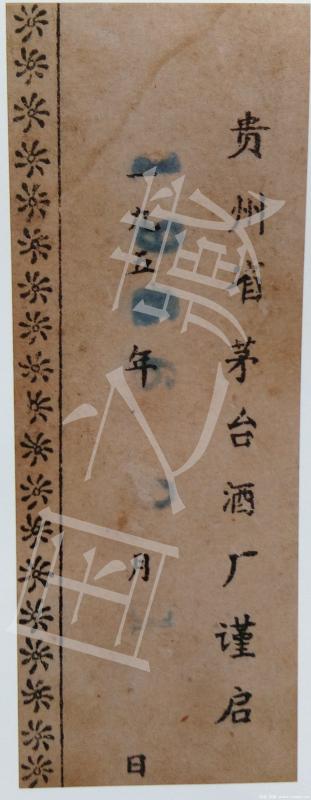 贵州省茅台酒厂谨启
一九五 年 月 日
国之藏